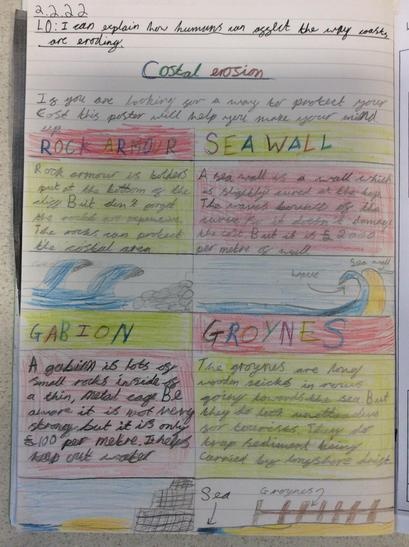 2.2.22
LO: I can explain how humans can affect the way coasts
are eroding.
Costal erosion
If you are looking for a way to protect your
Cost this poster will help you make your mind
up
ROCK ARMOUR
Rock armour is bolders
put at the bottom of the
cliff But don't forget
the rocks are expensive.
The rocks can protect
the costal area
SEA WALL
A sea wall is a wall which
is slightly cured at the top
The waves bounce of the
curve so it doesn't damage
the cost. But it is £2000
per metre of wall
wave
Sea wall
GABION
A gabion is lots of
small rocks inside of
a thin, metal cage Be
aware it is not very
strong but it is only
£100 per metre. It helps
keep out water
GROYNES
The groynes are long
wooden sticks in rows
going towards the sea But
they do look unattractive
for tourists. They do
trap sediment being
carried by longshore drift.
Sea
Groynes